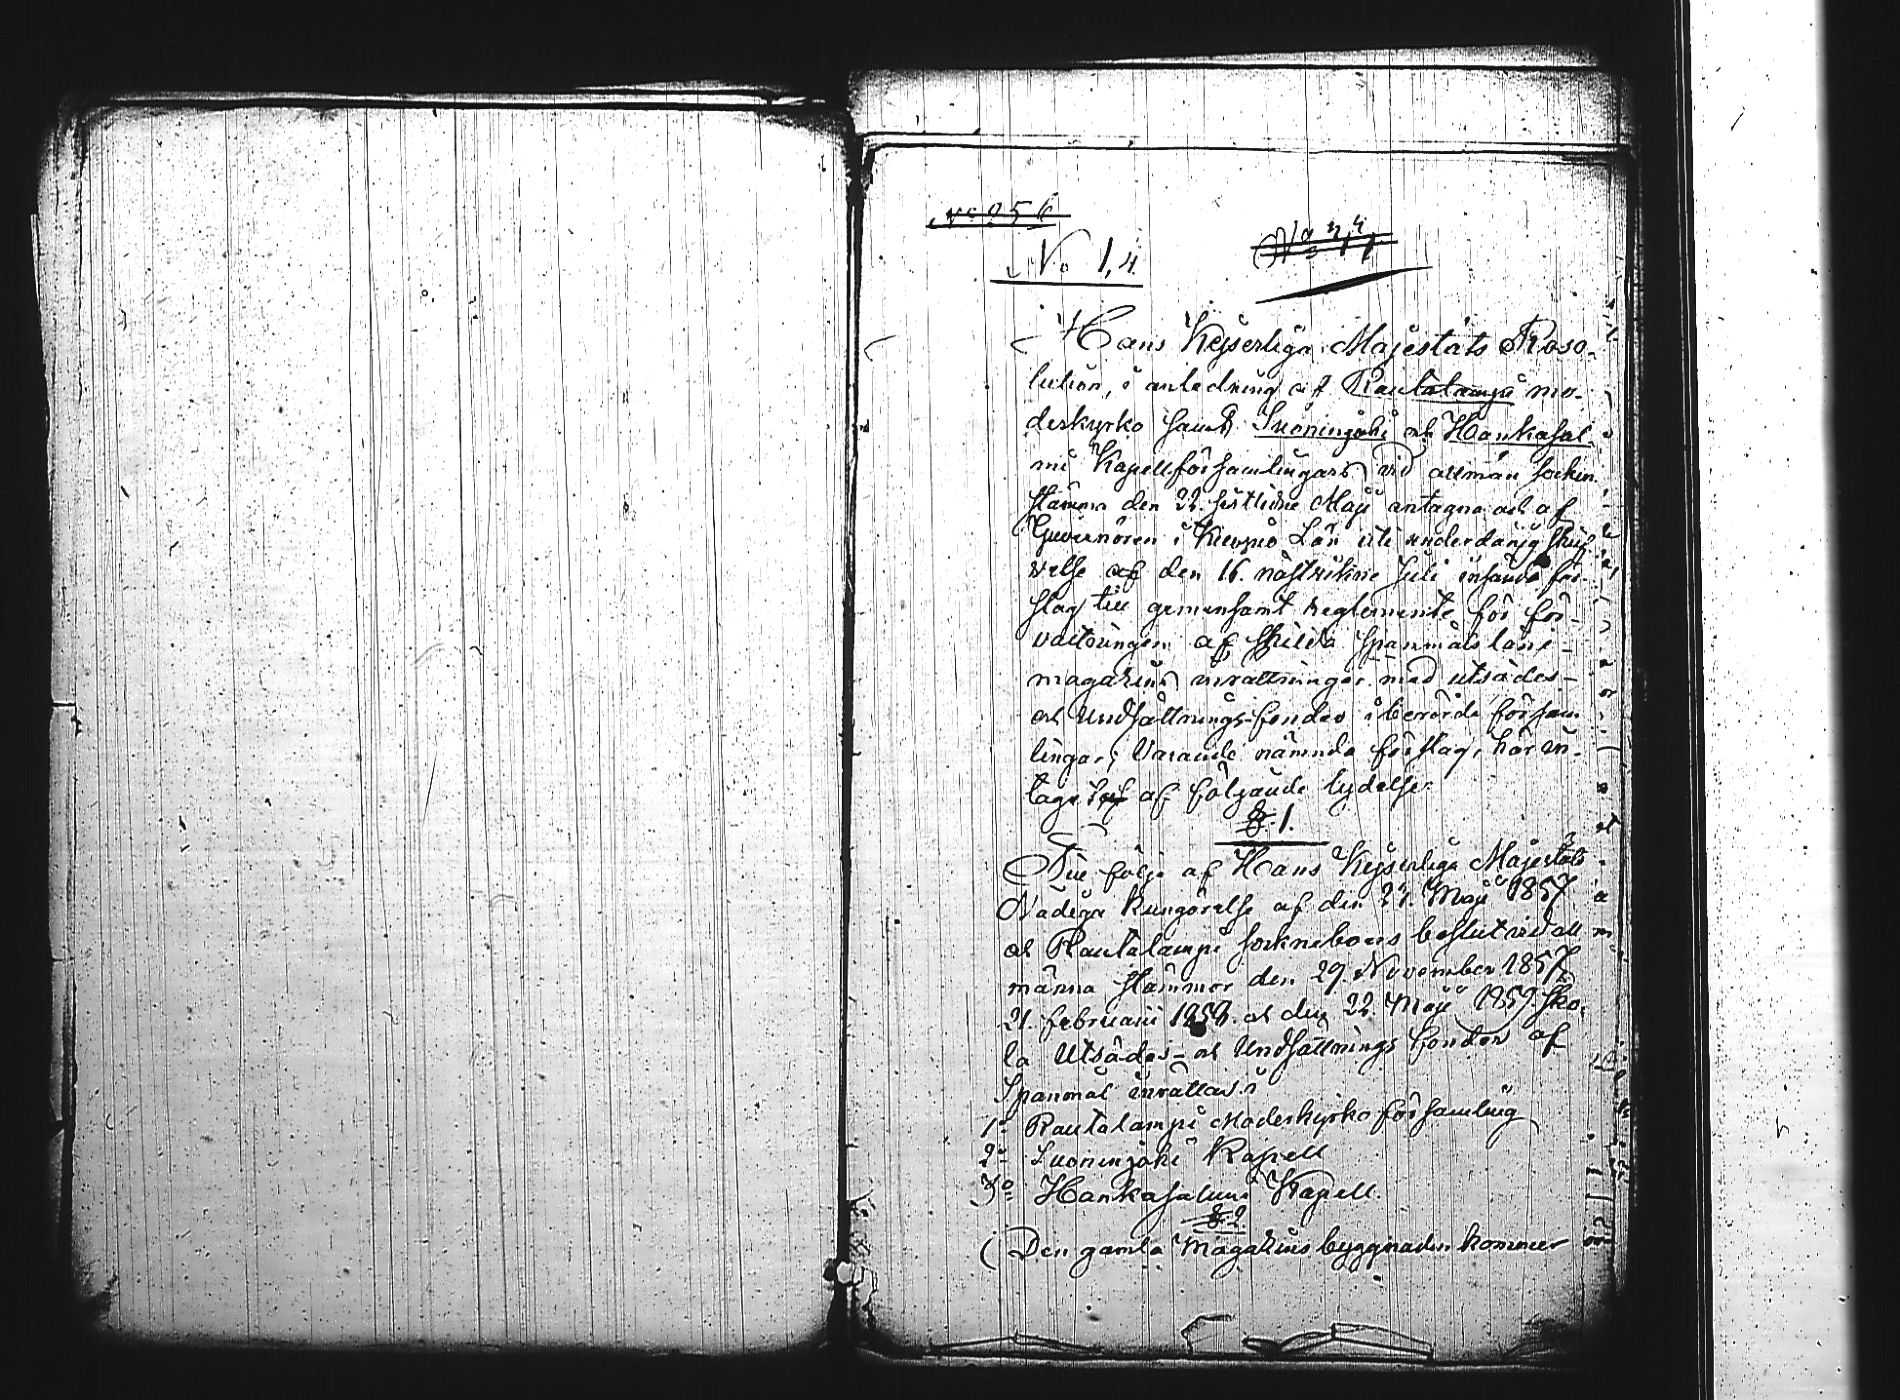 No 256
No 1,4
Hans Kejserliga Majestäts Reso-
lution, i anledning af Rautalampi mo-
derkyrko samt Suonenjoki och Hankasal-
mi Kapellförsamlingars vid allmän socken
stämma den 22. sistlidne Maji antagna och af
Guvernören i Kuopio Län uti underdånig skrif-
velse af den 16. nästvikne Juli insände för-
slag till gemensamt reglemente för för-
valtningen af skilda Spanmåls låne-
magasins inrättningar med utsädes-
och Undsättnings-fonder i berörde försam
lingar; Varande nämnde förslag, här in-
taget af följande lydelse:
§. 1.
Till följe af Hans Kejserliga Majestäts
Nådiga Kungörelse af den Maji 1857
och Rautalampi sockneboers beslut vid all
männa stämmor den 29. November 1857,
21. februari 1858. och den 22. Maji 1859. sko-
la Utsädes- och Undsättnings fonder af
Spanmål inrättas i
1o Rautalampi Moderkyrko församling
2o Suonenjoki Kapell
3o Hankasalmi Kapell.
§ 2
Den gamla Magasins byggnaden kommer